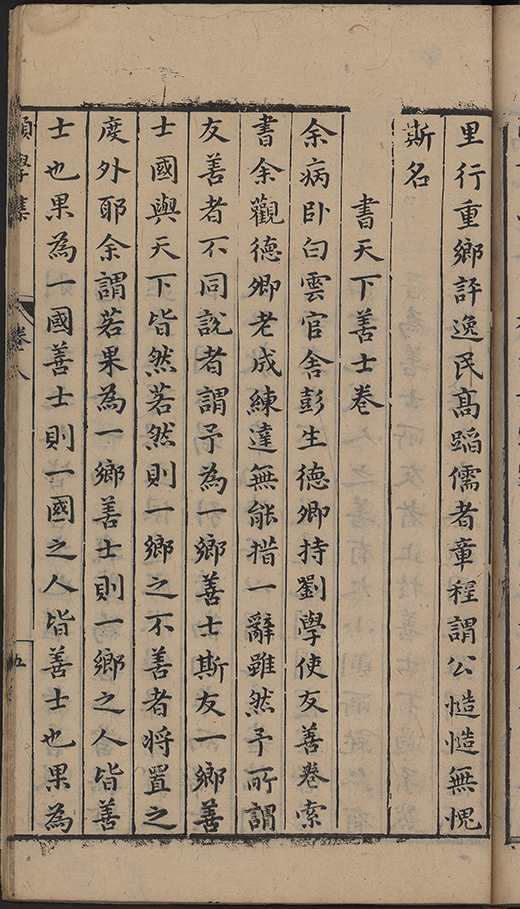 里行重鄉評逸民髙蹈儒者章程謂公慥慥無愧
斯名
書天下善士卷
余病臥白雲官舎彭生德卿持劉學使友善卷索
書余觀德卿老成練達無能措一辭雖然予所謂
友善者不同說者謂予為一鄉善士斯友一鄉善
士國與天下皆然若然則一鄉之不善者將置之
度外耶余謂若果為一鄉善士則一鄉之人皆善
士也果為一國善士則一國之人皆善士也果為
學集
卷八
五